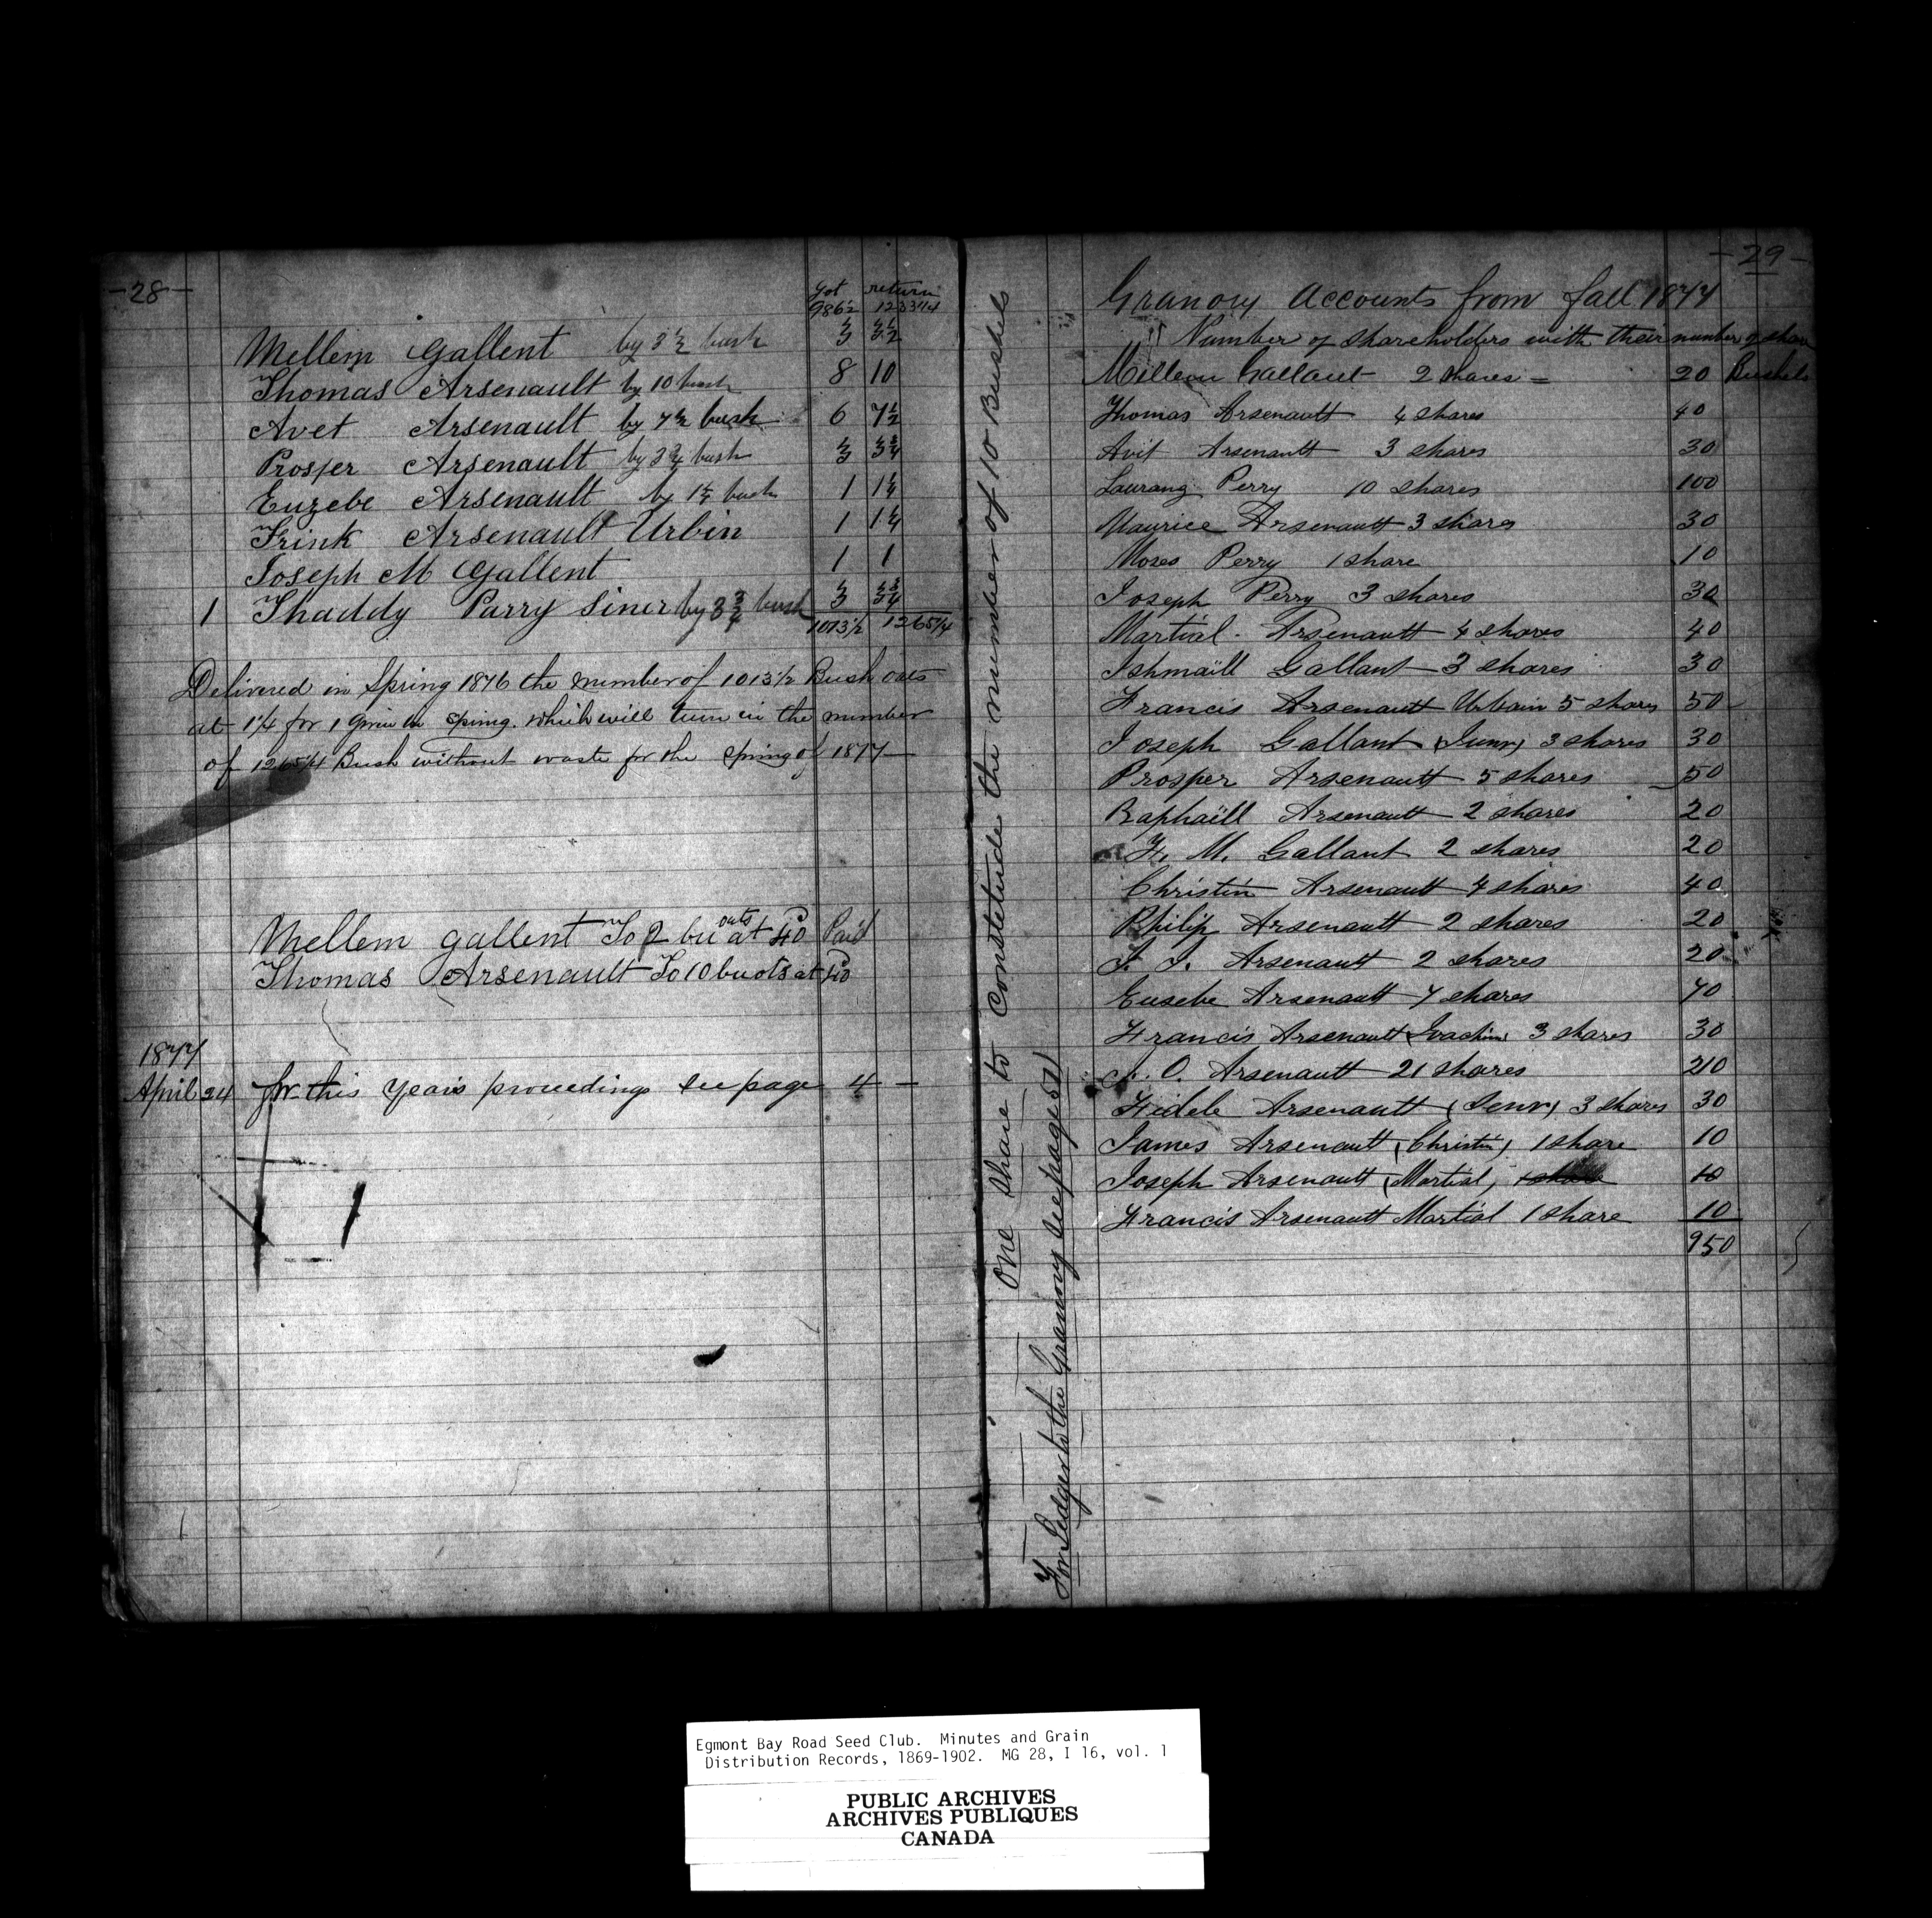 -28-
got return
986½ 1233¼
Mellem Gallent by 3½ bush 3 3½
Thomas Arsenault by 10 bush 8 10
Avet Arsenault by 7½ bush 6 7½
Prosper Arsenault by 3¾ bush 3 3¾
Euzebe Arsenault by 1¼ bush 1 1¼
Frink Arsenault Urbin 1 1¼
Joseph M Gallent 1 1
1 Thaddy Parry Siner by 3¾ bush 3 3¾
1013½ 1265¼
Delivered in Spring 1876 the number of 1013½ Bush oats
at 1¼ for 1 Given in Spring. which will turn in the number
of 1265¼ Bush without waste for the Spring of 1877—
Mellem gallent To 2 bu oats at 40 Paid
Thomas Arsenault To 10 bu ots at 40
1877
April 24 for this years proceedings see page 4 —
One Share to Constetude the number of 10 Bushels
For Ledger to the Granery see page 57
-29-
Granory Accounts from fall 1877
Number of Shareholders with their number of share
Milleau Gallant 2 Shares = 20 Bushels
Thomas Arsenault 4 shares 40
Avit Arsenault 3 shares 30
Laurang Perry 10 shares 100
Maurice Arsenault 3 shares 30
Moses Perry 1 share 10
Joseph Perry 3 shares 30
Martial. Arsenault 4 shares 40
Ishmaïll Gallant 3 shares 30
Francis Arsenault Urbain 5 shares 50
Joseph Gallant (Junr) 3 shares 30
Prosper Arsenault 5 shares 50
Raphaïll Arsenault 2 shares 20
F. M. Gallant 2 shares 20
Christin Arsenault 4 shares 40
Philip Arsenault 2 shares 20
J. J. Arsenault 2 shares 20
Eusebe Arsenault 7 shares 70
Francis Arsenault (Joachim) 3 shares 30
J. O. Arsenault 21 shares 210
Fidele Arsenault (Senr) 3 shares 30
James Arsenault (Christin) 1 share 10
Joseph Arsenault (Martial) 1 share 10
Francis Arsenault Martial 1 share 10
950
Egmont Bay Road Seed Club. Minutes and Grain
Distribution Records, 1869-1902. MG 28, I 16, vol. 1
PUBLIC ARCHIVES
ARCHIVES PUBLIQUES
CANADA